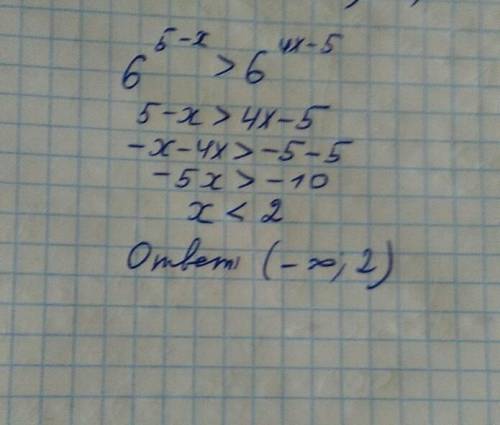 6^(5-x) > 6^(4x-5)
5-x > 4x-5
-x-4x > -5-5
-5x > -10
x < 2
Ответ: (-∞, 2)